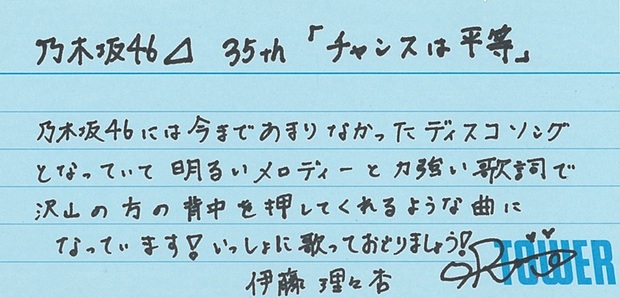 乃木坂46⊿ 35th「チャンスは平等」
乃木坂46には今まであまりなかったディスコソング
となっていて明るいメロディーと力強い歌詞で
沢山の方の背中を押してくれるような曲に
なっています！いっしょに歌っておどりましょう！
伊藤理々杏
TOWER